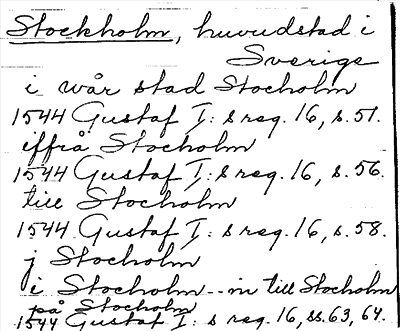 Stockholm, huvudstad i
Sverige
i wår stad Stocholm
1544 Gustaf I:s reg. 16, s. 51.
iffrå Stocholm
1544 Gustaf I:s reg. 16, s. 56.
till Stocholm
1544 Gustaf I:s reg. 16, s. 58.
j Stocholm
i Stocholm -- in till Stocholm
på Stocholm
1544 Gustaf I:s reg. 16, ss. 63, 64.